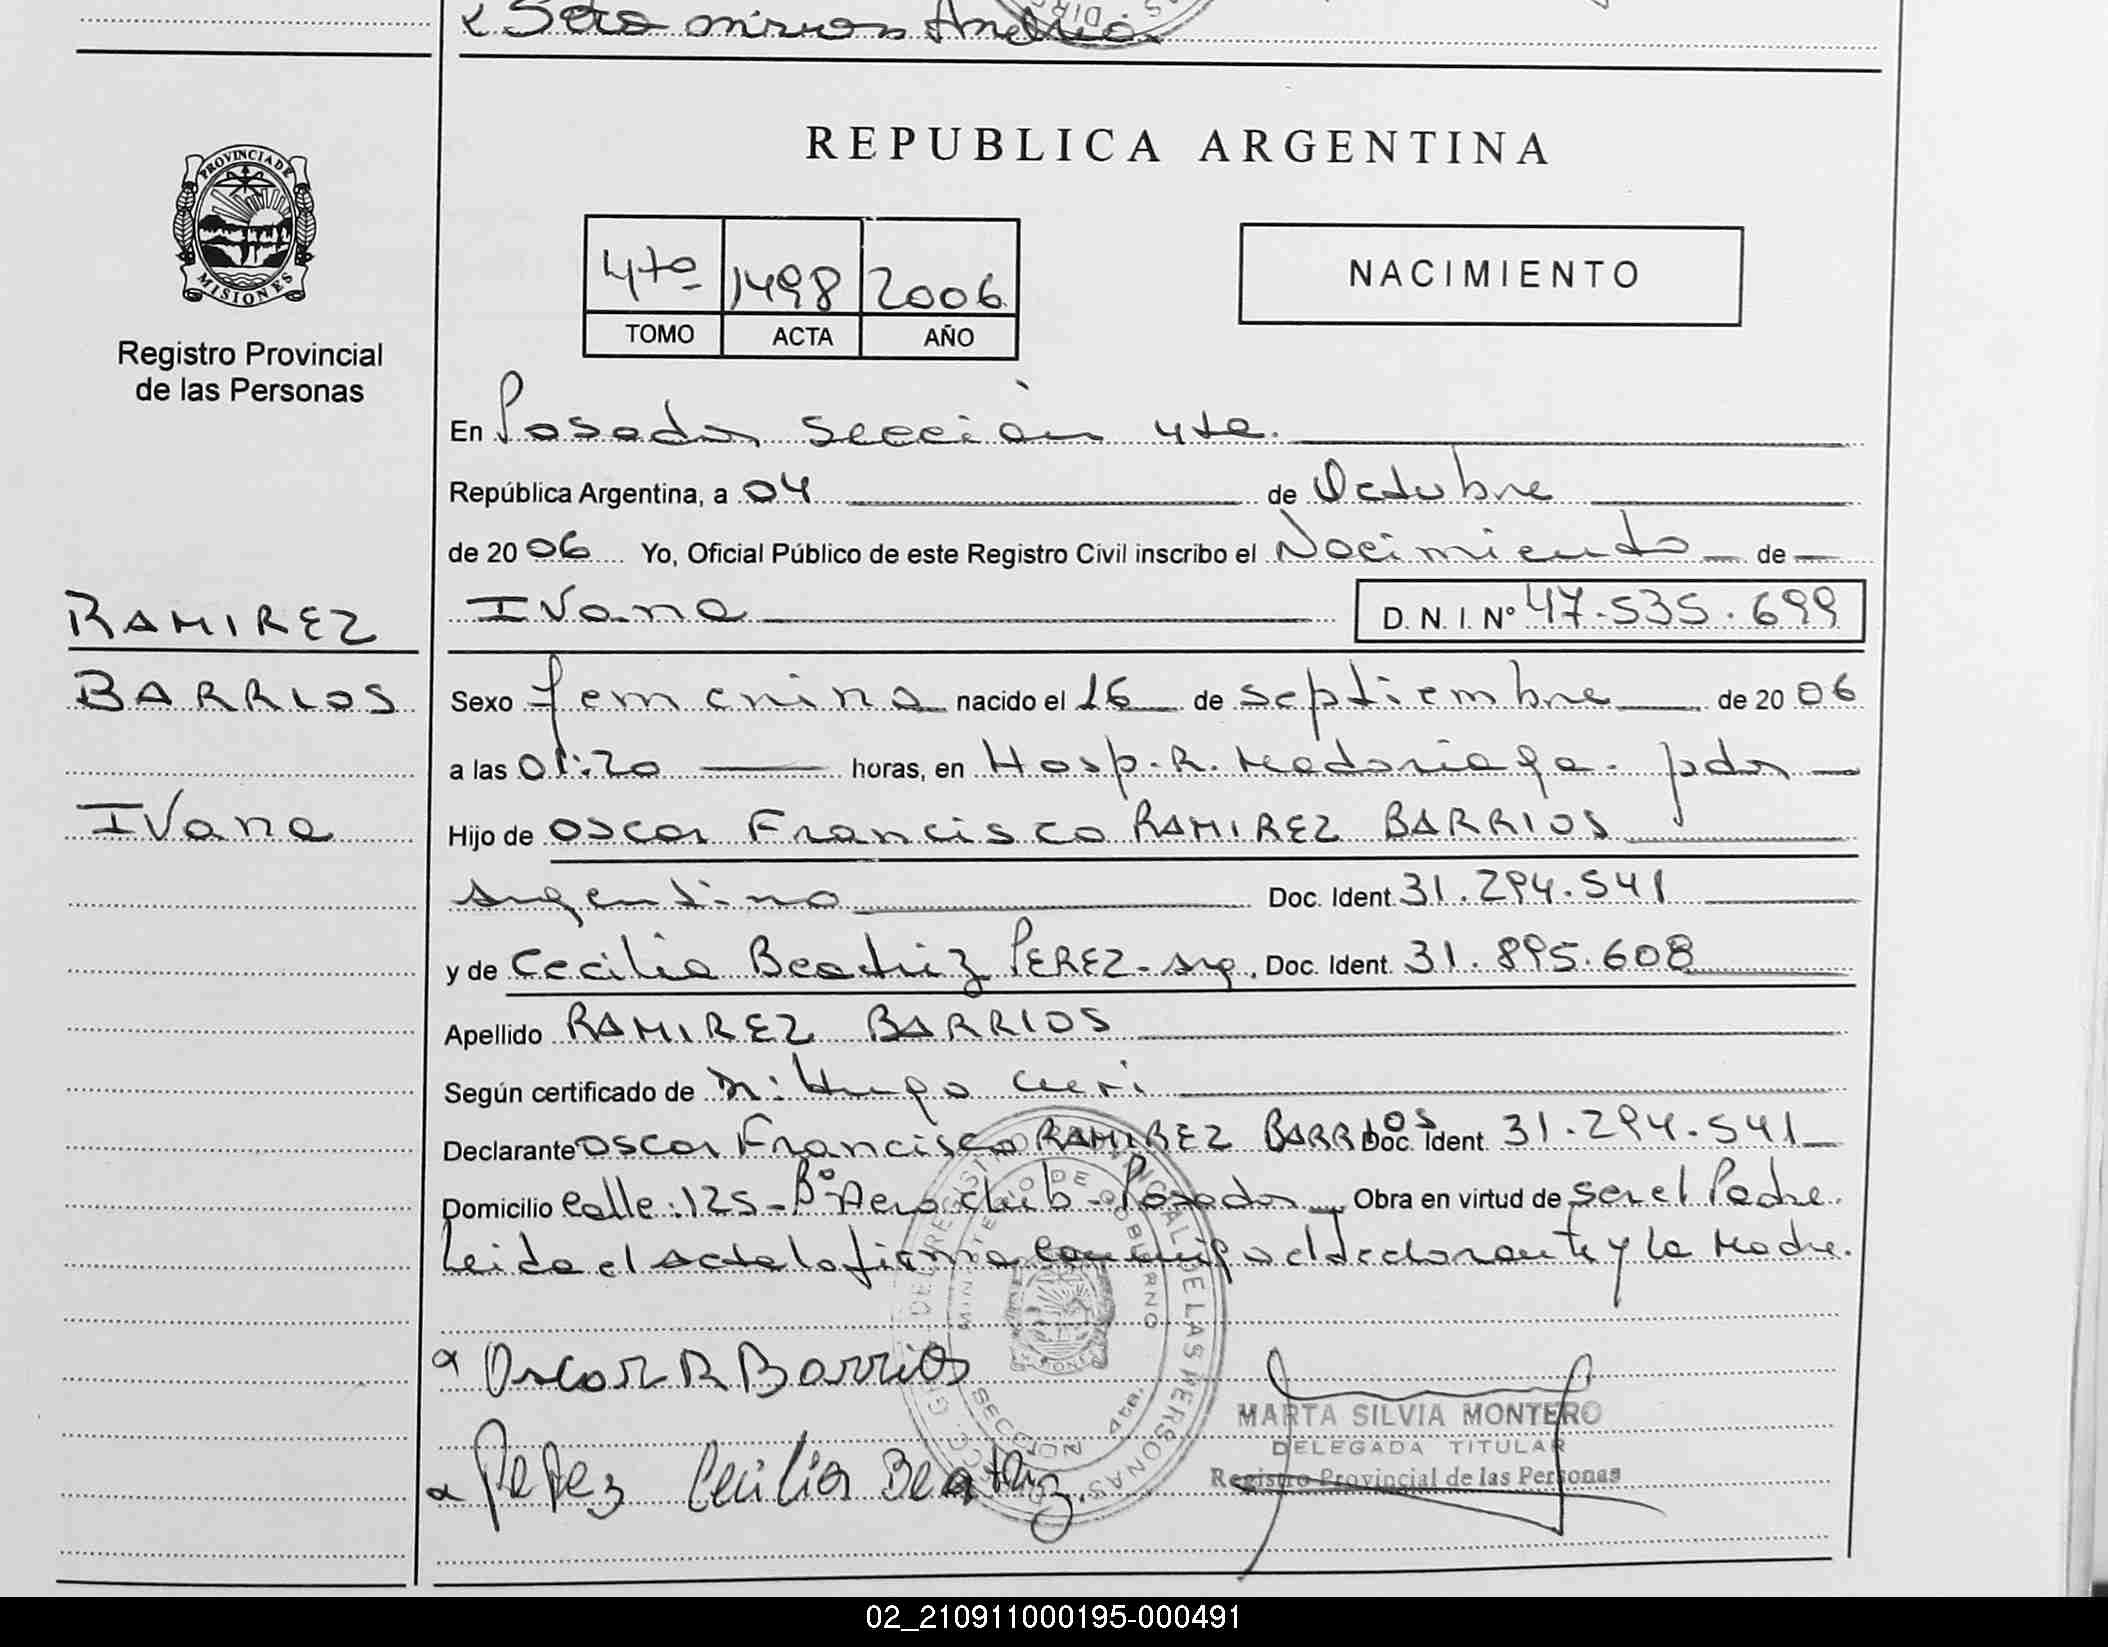 Soto mirron Andrea
PROVINCIA DE
MISIONES
Registro Provincial
de las Personas
REPUBLICA ARGENTINA
4to 1498 2006
TOMO ACTA AÑO
NACIMIENTO
En Posadas sección 4ta.
República Argentina, a 04 de Octubre
de 2006 Yo, Oficial Público de este Registro Civil inscribo el Nacimiento de
RAMIREZ
Ivana D. N. I. Nº 47.535.699
BARRIOS
Sexo femenino nacido el 16 de septiembre de 2006
a las 01:20 horas, en Hosp. R. Madariaga. pdas
Ivana
Hijo de Oscar Francisco RAMIREZ BARRIOS
argentino Doc. Ident. 31.294.541
y de Cecilia Beatriz PEREZ - arg. Doc. Ident. 31.895.608
Apellido RAMIREZ BARRIOS
Según certificado de Dr: Hugo Curi
Declarante Oscar Francisco RAMIREZ BARRIOS Doc. Ident. 31.294.541
Domicilio Calle: 125 - Bº Aero club - Posadas Obra en virtud de ser el Padre.
Leida el acta la firma conmigo el declarante y la Madre.
Oscar R Barrios
Perez Cecilia Beatriz.
MINISTERIO DE GOBIERNO
SECCION 4ta.
MARTA SILVIA MONTERO
DELEGADA TITULAR
Registro Provincial de las Personas
02_210911000195-000491